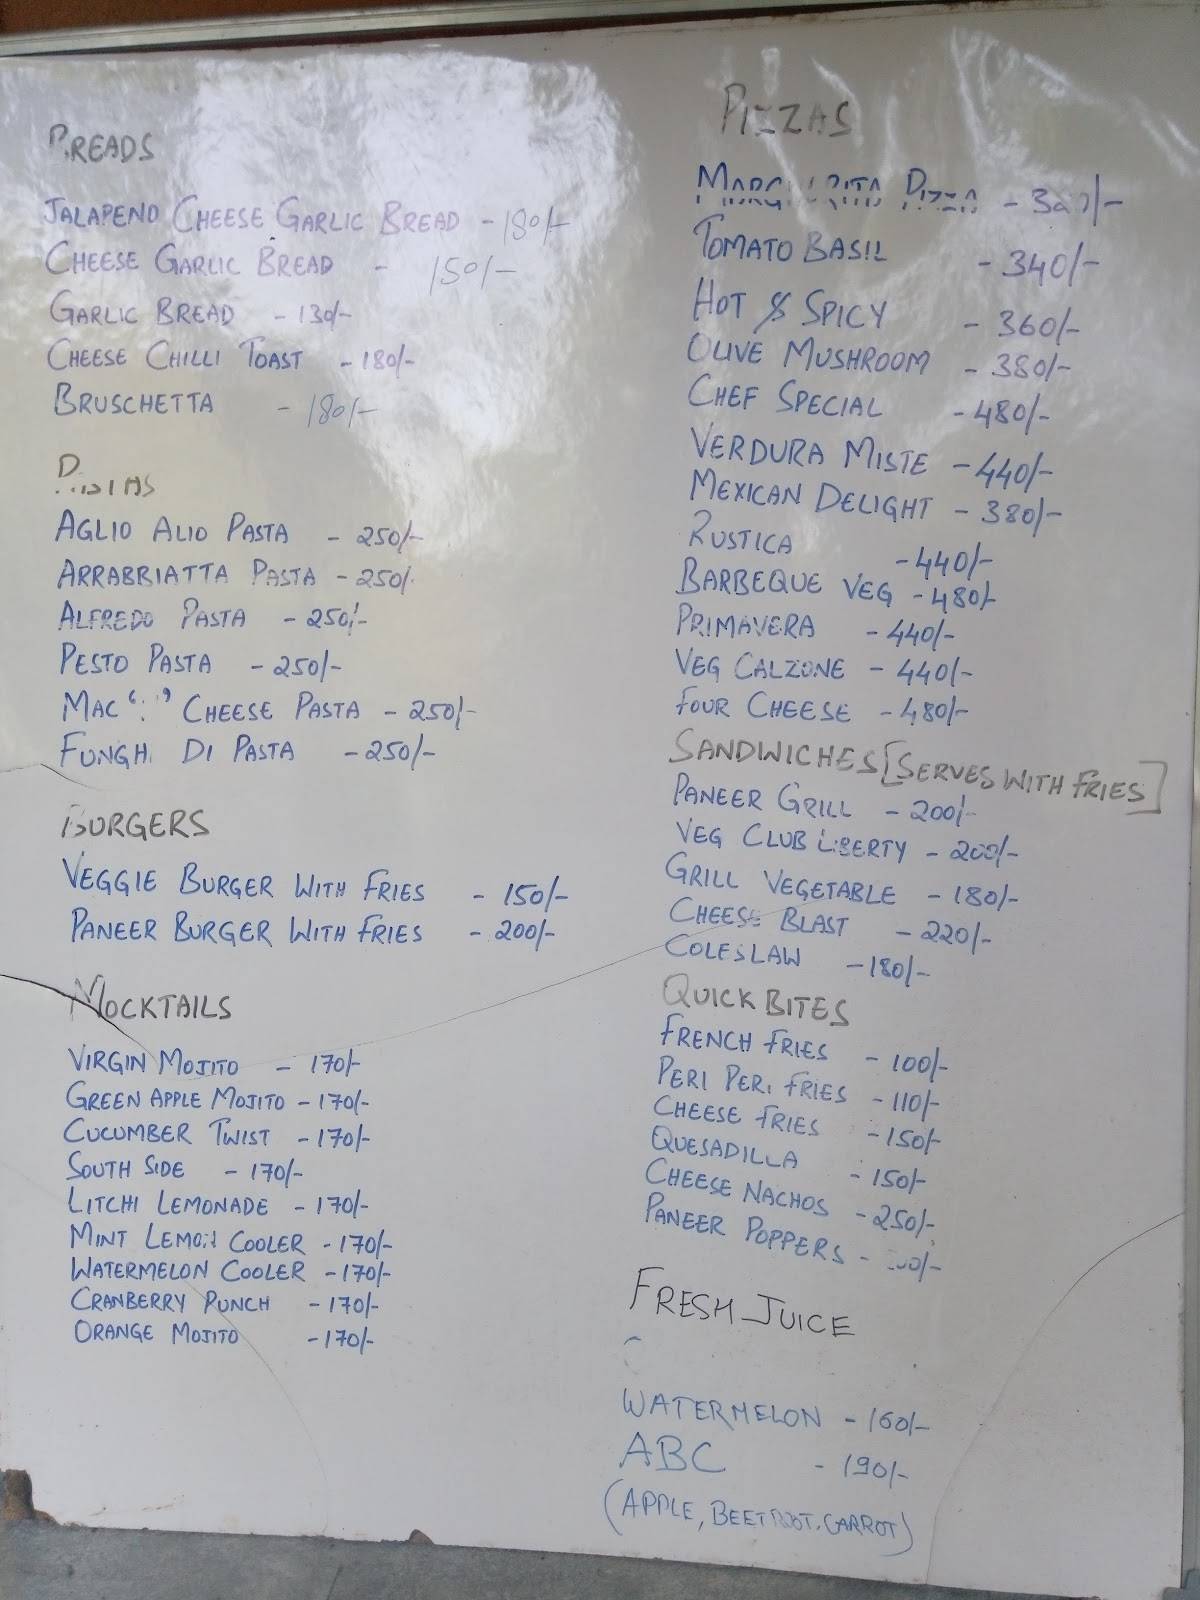 BREADS
JALAPENO CHEESE GARLIC BREAD - 180/-
CHEESE GARLIC BREAD - 150/-
GARLIC BREAD - 130/-
CHEESE CHILLI TOAST - 180/-
BRUSCHETTA - 180/-
PASTAS
AGLIO ALIO PASTA - 250/-
ARRABBIATTA PASTA - 250/-
ALFREDO PASTA - 250/-
PESTO PASTA - 250/-
MAC CHEESE PASTA - 250/-
FUNGHI DI PASTA - 250/-
BURGERS
VEGGIE BURGER WITH FRIES - 150/-
PANEER BURGER WITH FRIES - 200/-
MOCKTAILS
VIRGIN MOJITO - 170/-
GREEN APPLE MOJITO - 170/-
CUCUMBER TWIST - 170/-
SOUTH SIDE - 170/-
LITCHI LEMONADE - 170/-
MINT LEMON COOLER - 170/-
WATERMELON COOLER - 170/-
CRANBERRY PUNCH - 170/-
ORANGE MOJITO - 170/-
PIZZAS
PIZZA -
TOMATO BASIL - 340/-
HOT & SPICY - 360/-
OLIVE MUSHROOM - 380/-
CHEF SPECIAL - 480/-
VERDURA MISTE - 440/-
MEXICAN DELIGHT - 380/-
RUSTICA - 440/-
BARBEQUE VEG - 480/-
PRIMAVERA - 440/-
VEG CALZONE - 440/-
FOUR CHEESE - 480/-
SANDWICHES [SERVES WITH FRIES]
PANEER GRILL - 200/-
VEG CLUB LIBERTY - 200/-
GRILL VEGETABLE - 180/-
CHEESE BLAST - 220/-
COLESLAW - 180/-
QUICK BITES
FRENCH FRIES - 100/-
PERI PERI FRIES - 110/-
CHEESE FRIES - 150/-
QUESADILLA - 150/-
CHEESE NACHOS - 250/-
PANEER POPPERS -
FRESH JUICE
WATERMELON - 160/-
ABC - 190/-
(APPLE, BEETROOT, CARROT)